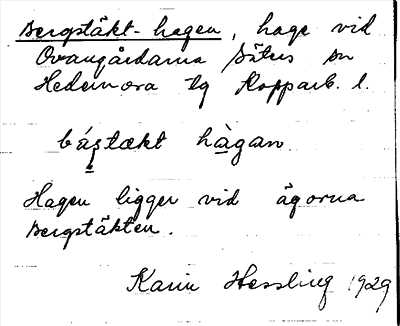 Bergstäkt-hagen, hage vid
Ovangårdarna Säters sn
Hedemora tg Kopparb. l.
bástækt hàgan.
Hagen ligger vid ägorna
Bergstäkten.
Karin Hessling 1929